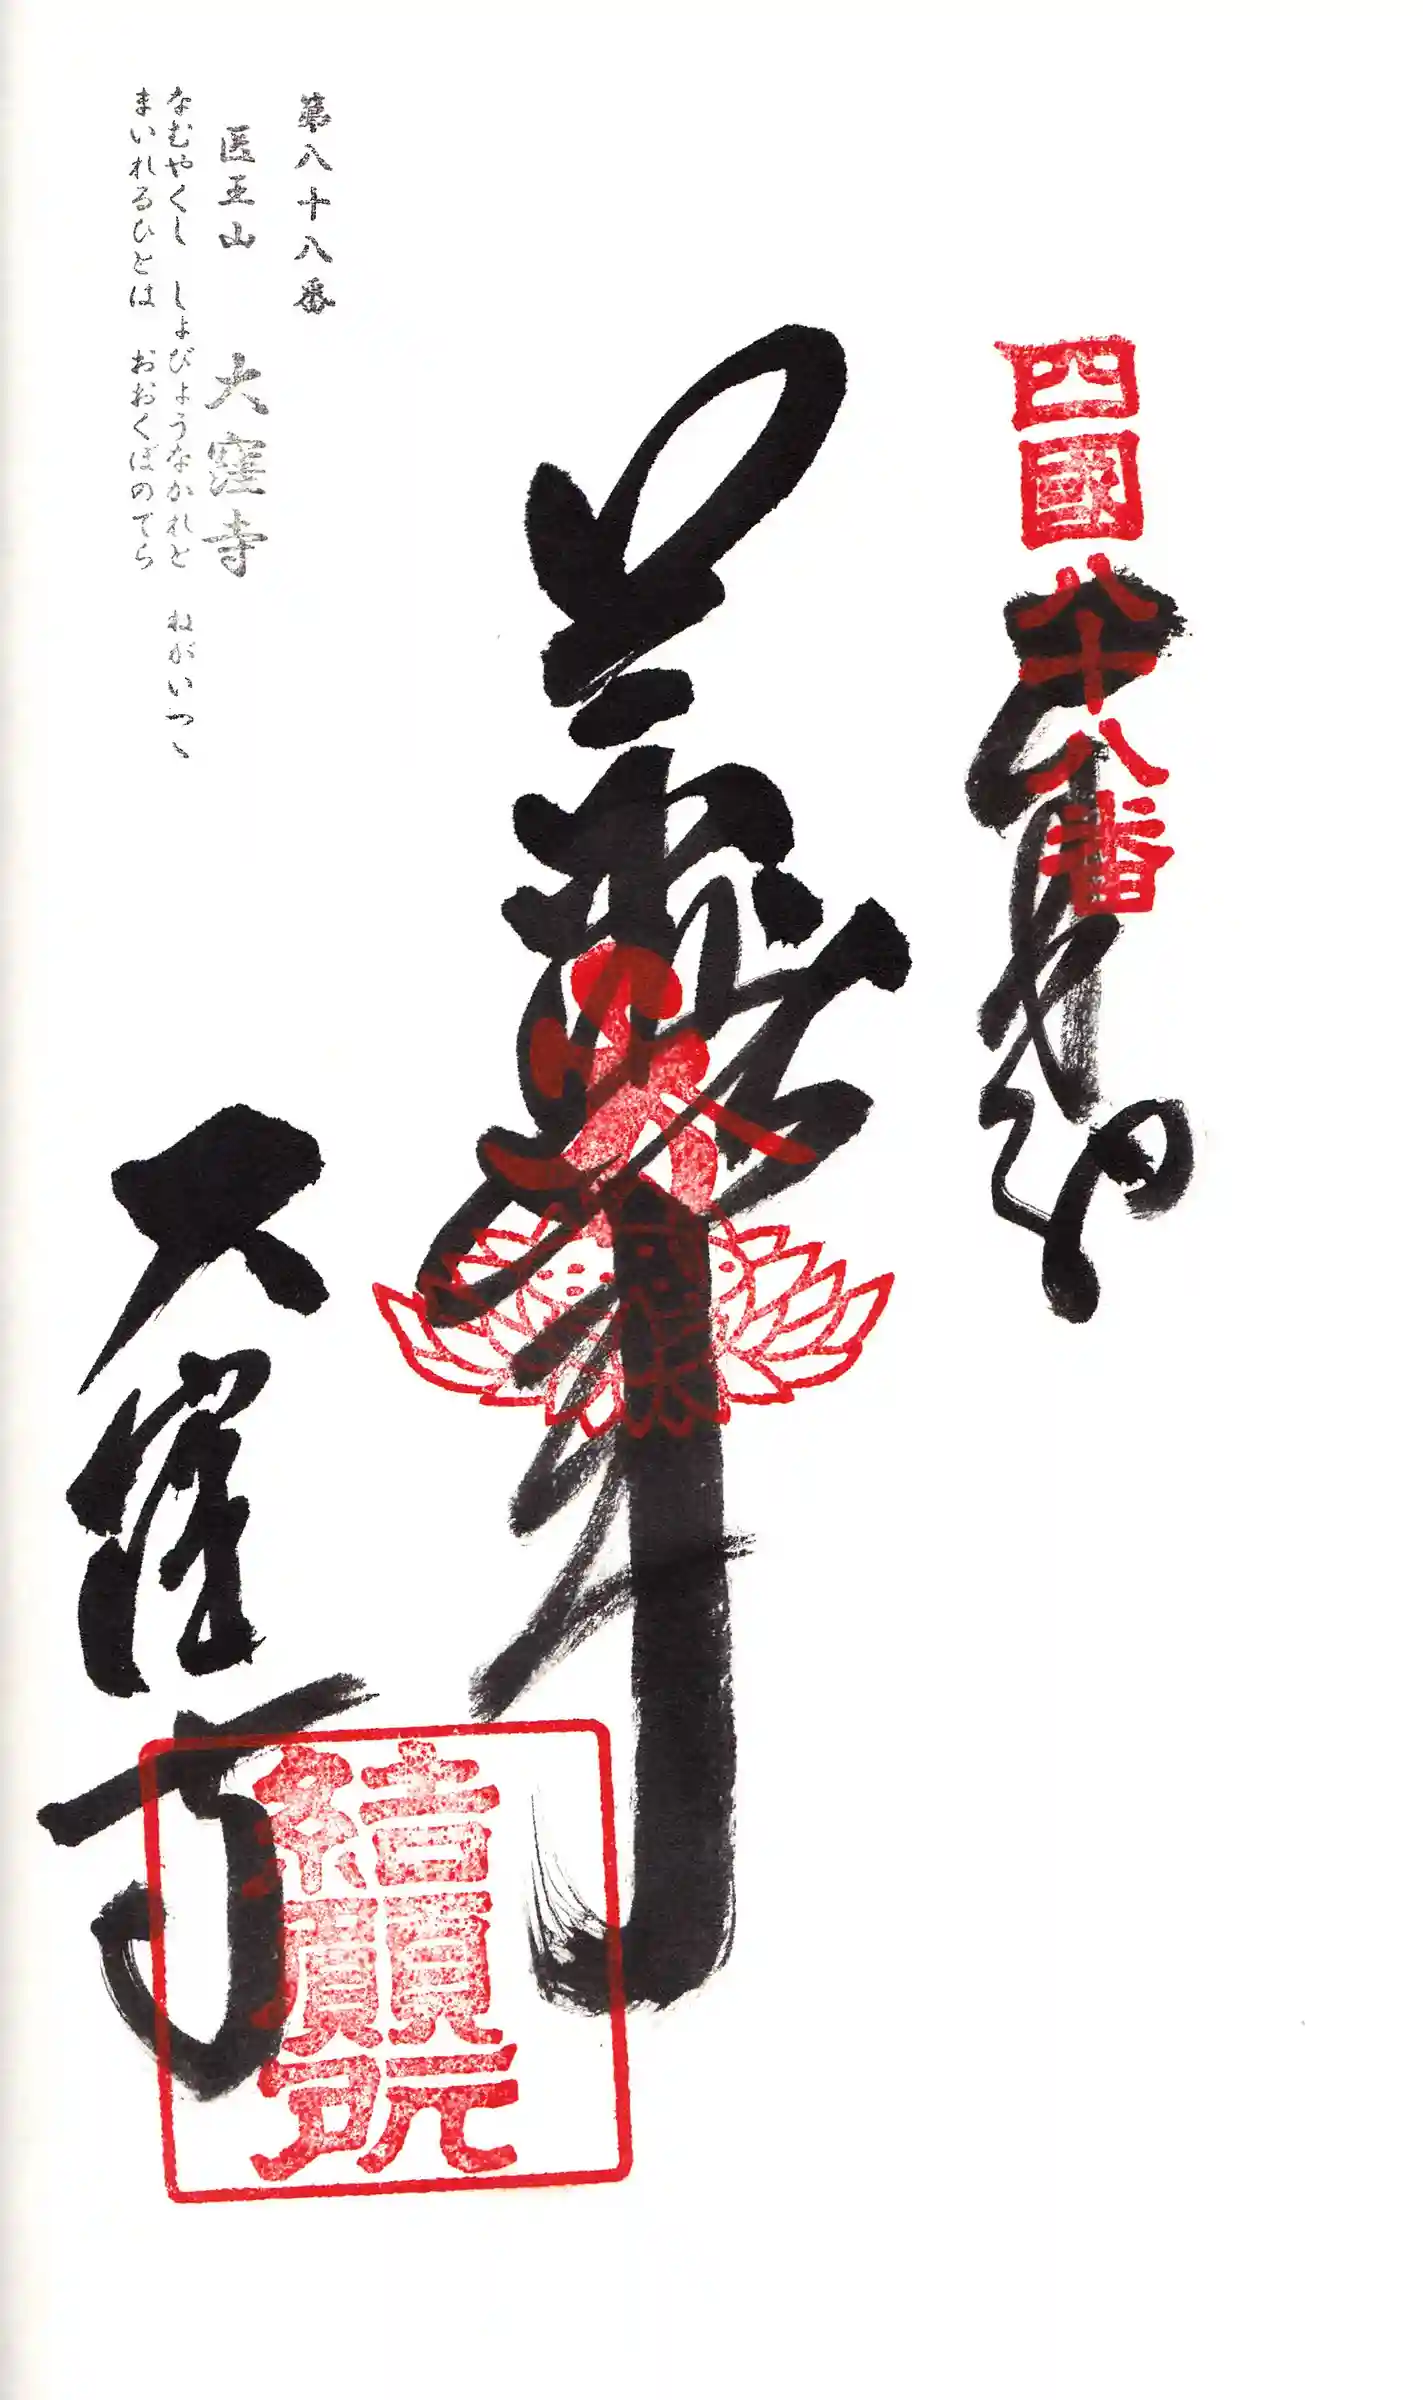 四國八十八番
奉納
大窪寺
結願所
第八十八番
医王山 大窪寺
なむやくし しょびょうなかれと ねがいつゝ
まいれるひとは おおくぼのてら